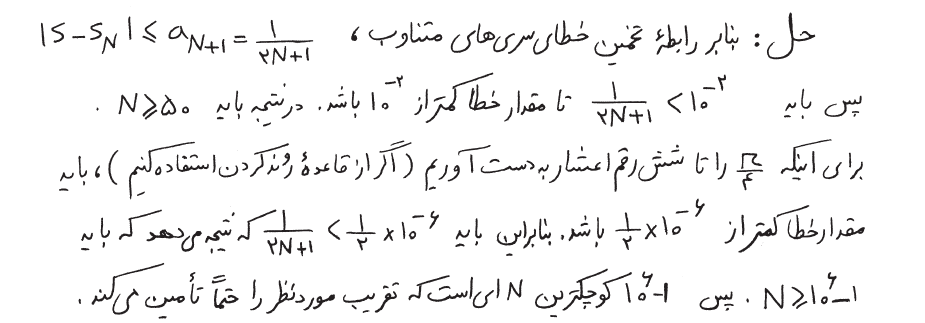 حل : بنابر رابطهٔ تخمین خطای سری‌های متناوب ، |S-S_N| ≤ a_{N+1} = ۱/(۲N+۱)
پس باید ۱/(۲N+۱) < ۱۰^{-۲} تا مقدار خطا کمتر از ۱۰^{-۲} باشد. در نتیجه باید N ≥ ۵۰ .
برای اینکه π/۴ را تا شش رقم اعشار به دست آوریم (اگر از قاعدهٔ روند کردن استفاده کنیم) ، باید
مقدار خطا کمتر از ۱/۲ × ۱۰^{-۶} باشد. بنابراین باید ۱/(۲N+۱) < ۱/۲ × ۱۰^{-۶} که نتیجه می‌دهد که باید
N ≥ ۱۰^۶-۱ . پس ۱۰^۶-۱ کوچکترین N ای است که تقریب مورد نظر را حتماً تأمین می‌کند .